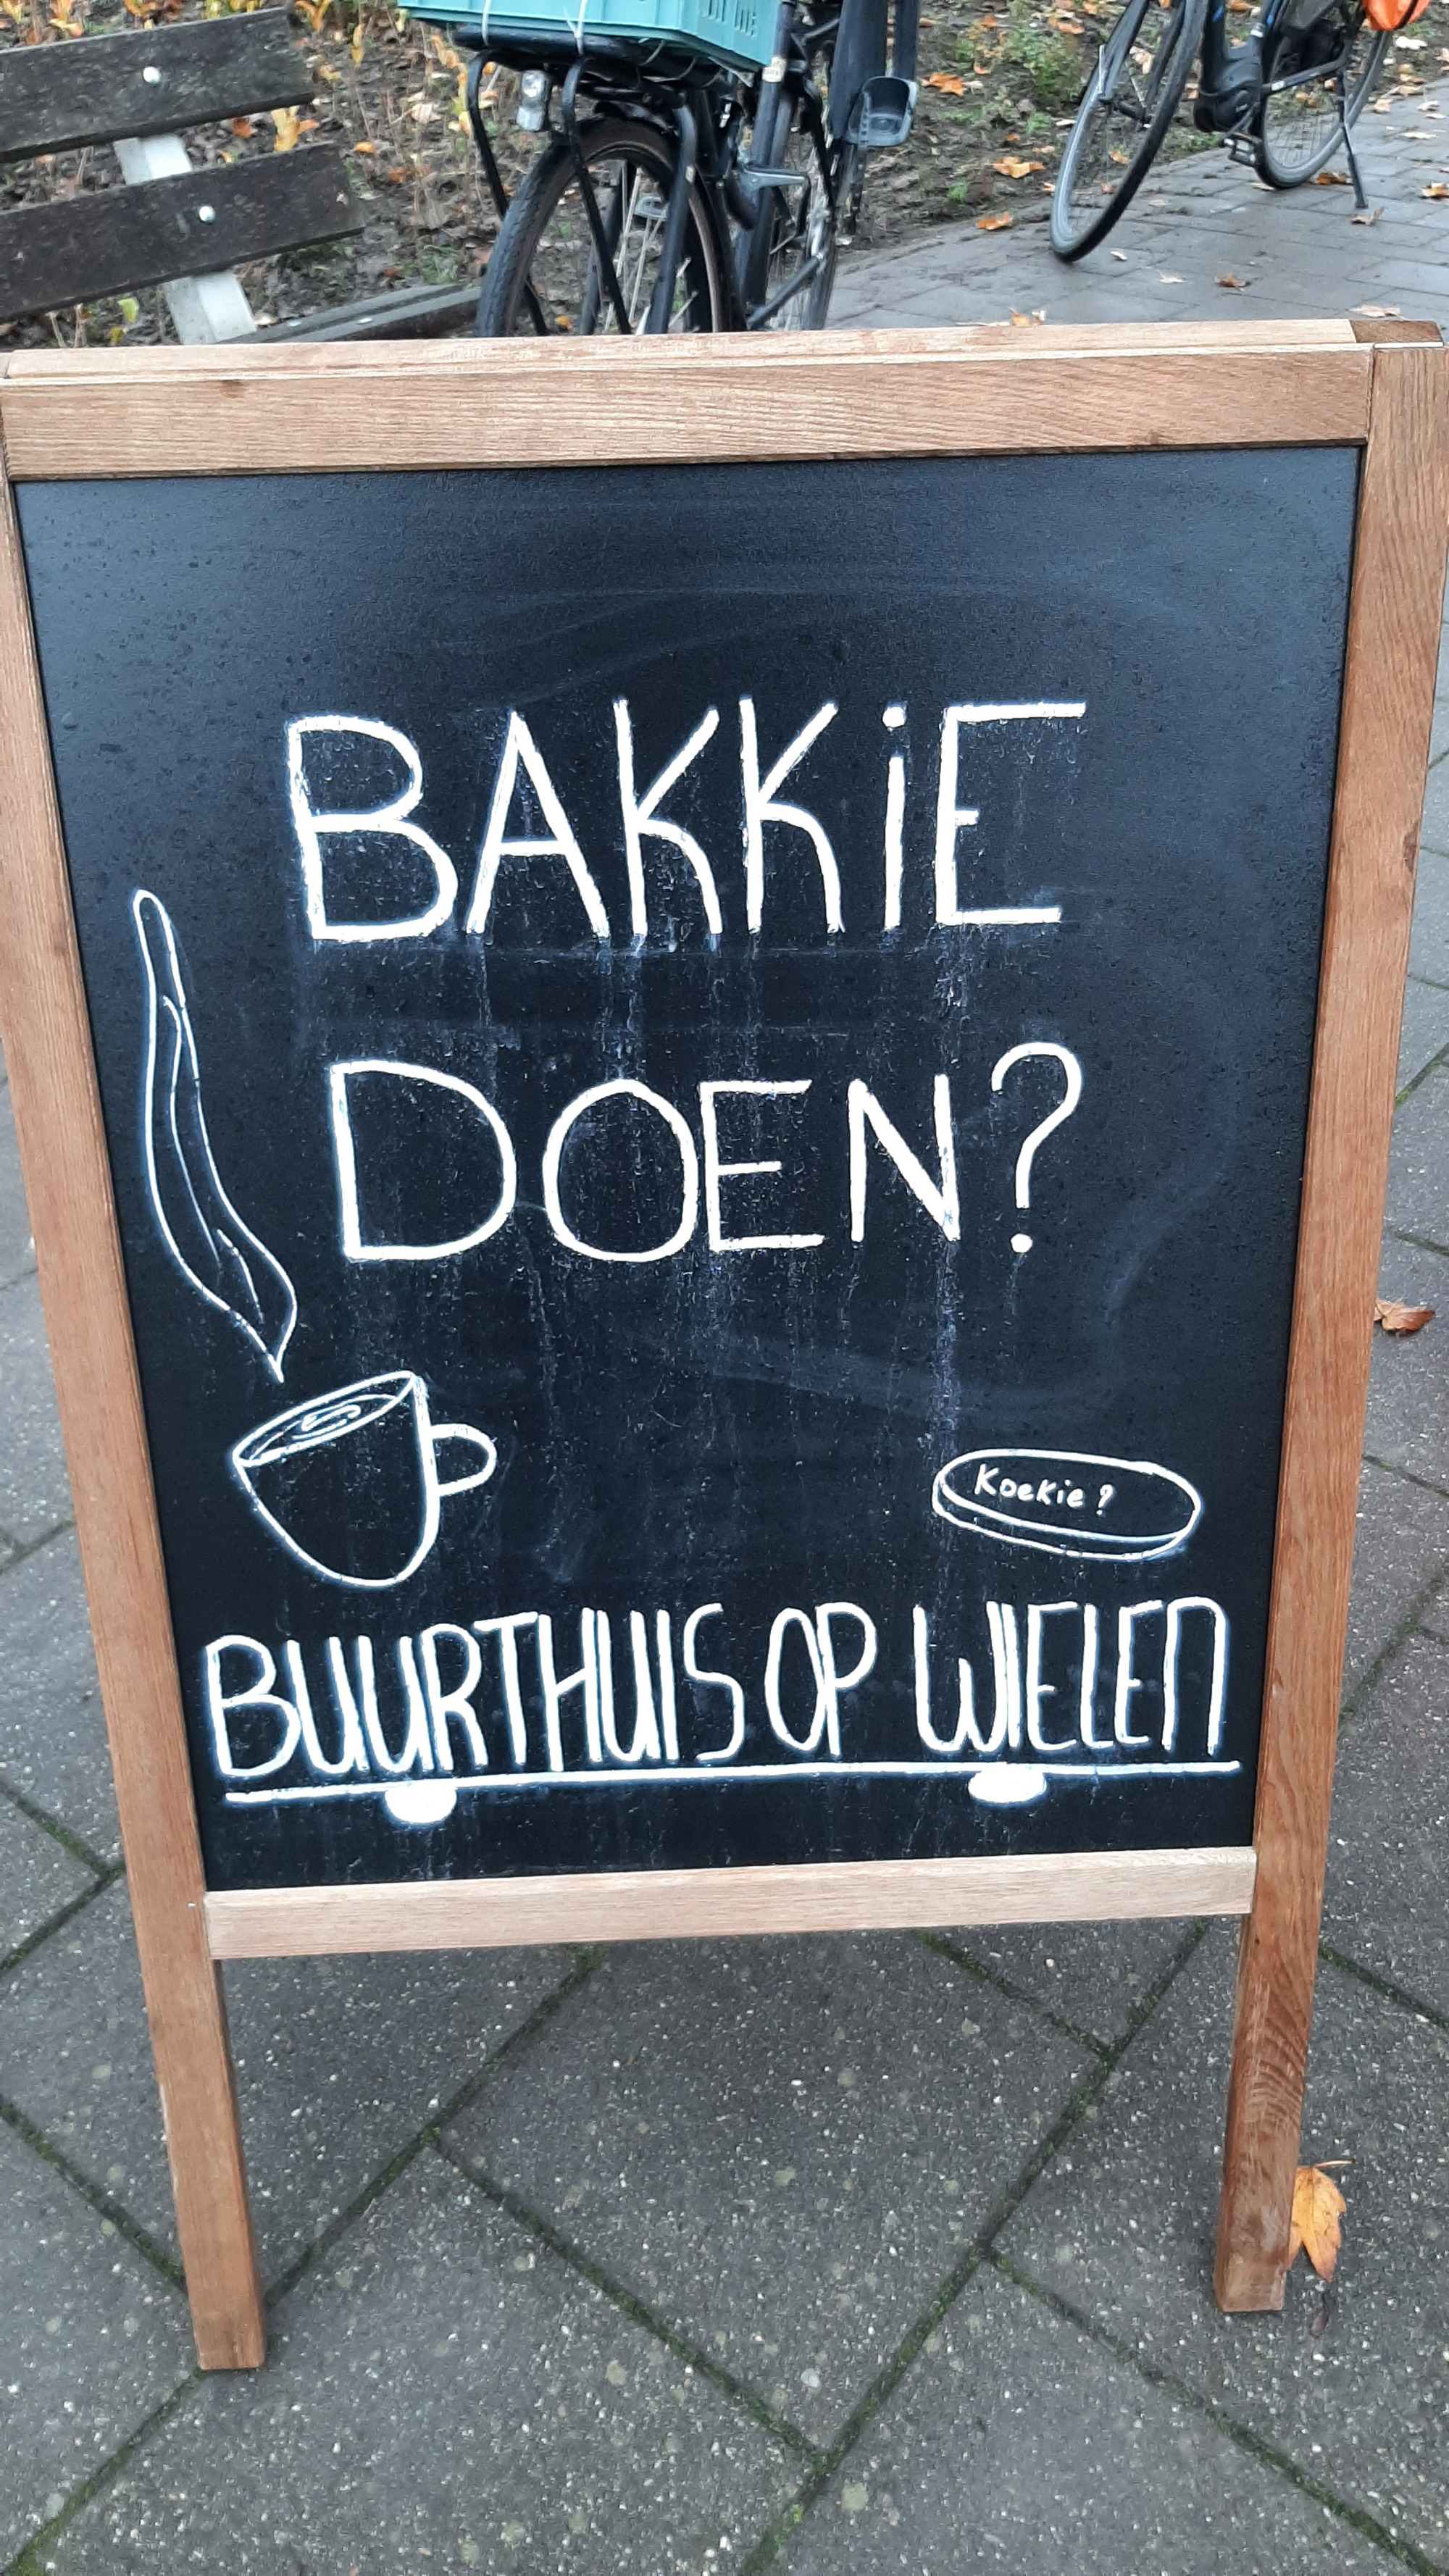 BAKKiE
DOEN?
Koekie?
BUURTHUIS OP WIELEN